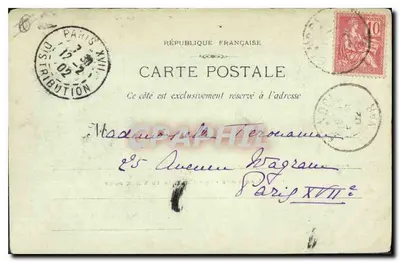 RÉPUBLIQUE FRANÇAISE
CARTE POSTALE
Ce côté est exclusivement réservé à l'adresse
PARIS XVII
DISTRIBUTION
10
Mademoiselle
25 Avenue Wagram
Paris XVIIe